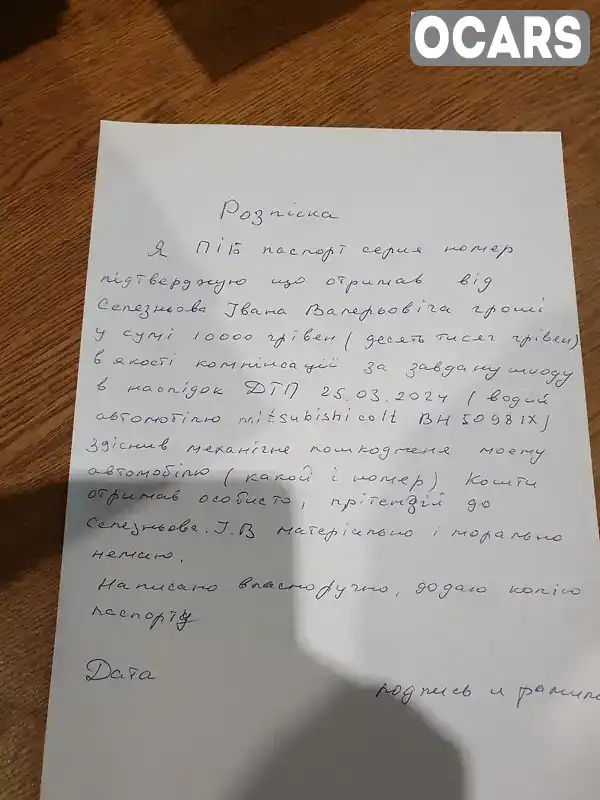 OCARS
Розпіска
Я ПІБ паспорт серия номер
підтверджую що отримав від
Селезньова Івана Валерьовіча гроші
у сумі 10000 грівен (десять тисяч грівен)
в якості компінсації за завдану шкоду
в наслідок ДТП 25.03.2024 (водій
автомобілю mitsubishi colt ВН 5098 ІХ)
здіснив механічне пошкоджене моему
автомобілю (какой і номер) Кошти
отримав особисто, прітензій до
Селезньова.І.В матеріально і морально
немаю.
Написано власноручно, додаю копію
паспорту
Дата
подпись и фамили